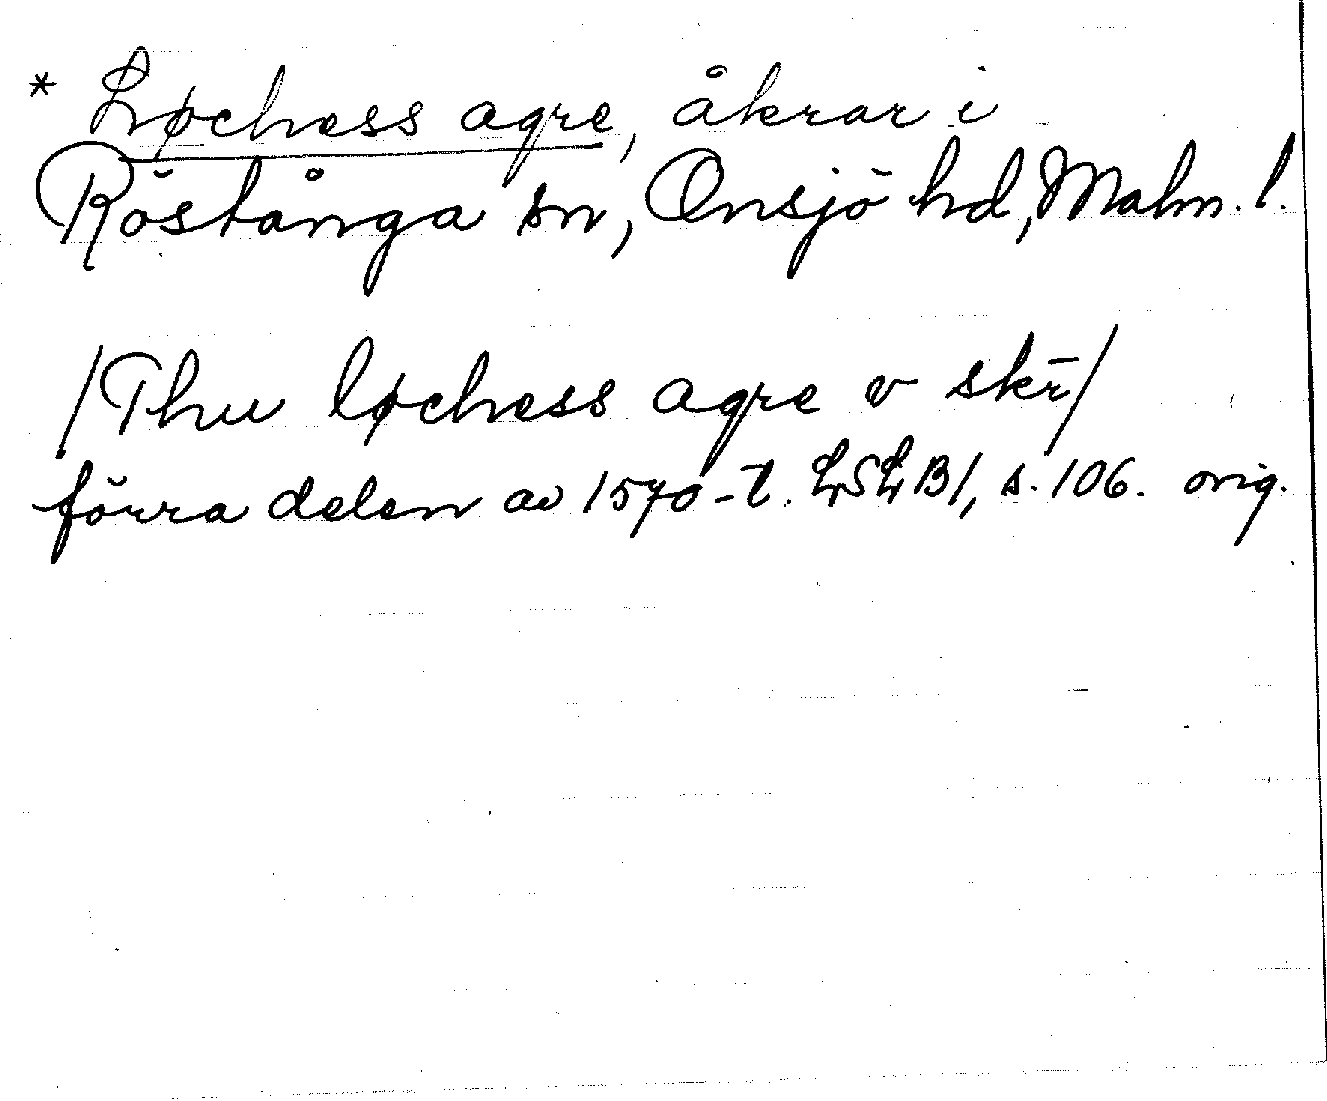 * Løchess agre, åkrar i
Röstånga sn, Onsjö hd, Malm. l.
/Thu løchess agre v skr̄/
förra delen av 1570-t. LSLB1, s. 106. orig.